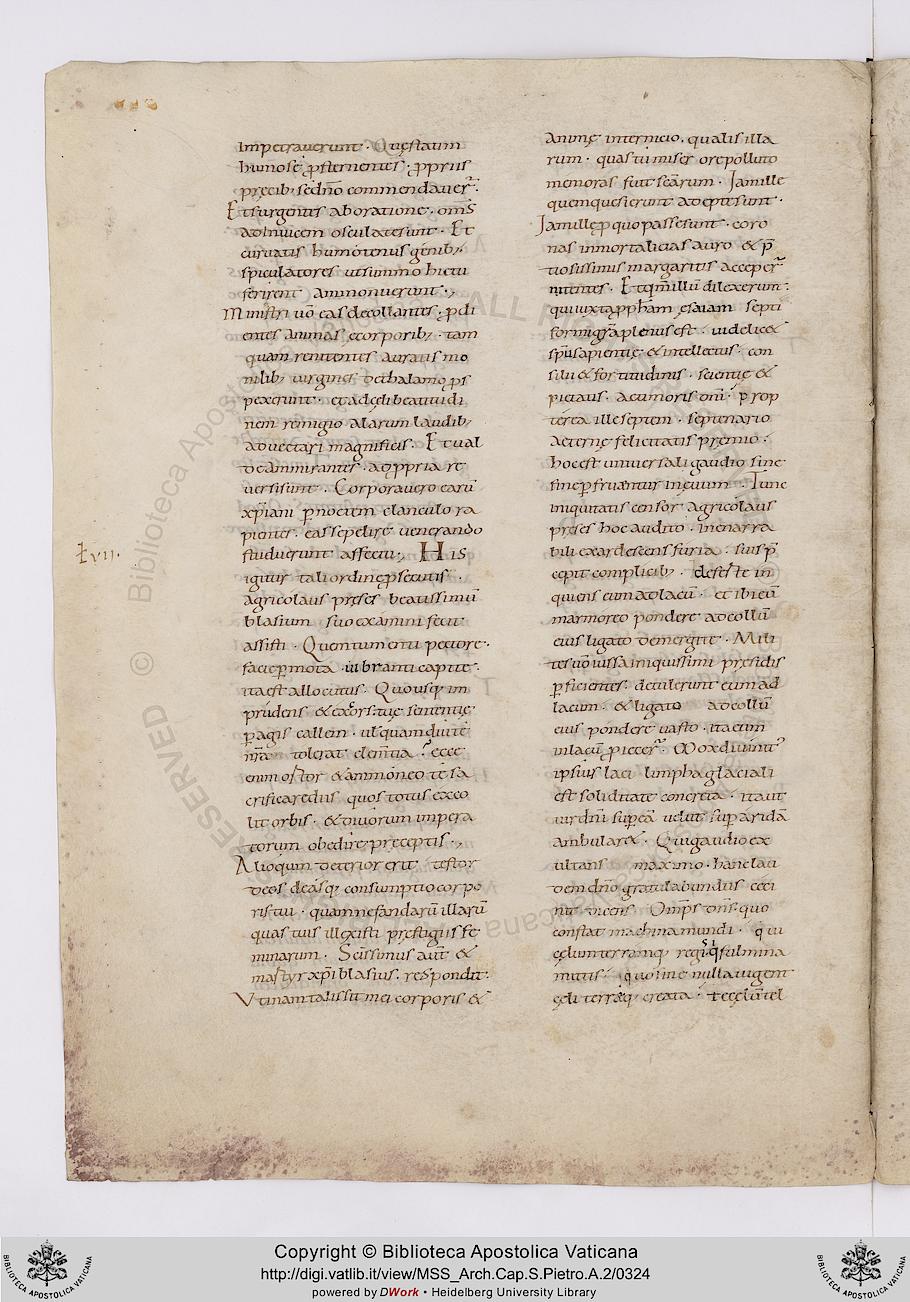 impetraverunt. Quęstatim
humosę ꝓsternentes. ꝓpriis
pręcibꝫ sed dn̄o commendaver̄.
Et surgentes ab oratione. om̄s
adinvicem osculatę sunt. Et
curvatis humotenus genibꝫ.
spiculatores ut summo hictu
ferirent ammonuerunt.,
Ministri uō eas decollantes. ꝓdi
entes animas ę corporibꝫ. tam
quam renitentes auratis mo
nilibꝫ virgines de thalamo ꝓs
pexerunt. et ad dęi beati vidi
nem remigio alarum laudibꝫ
advectari magnificis. Et ual
de ammirantes. ad ꝓpria re
versi sunt. Corpora vero earū
xp̄iani p̱ noctem clanculo ra
pientes. eas sepelire venerando
studuerunt affectu., His
łvii.
igitur tali ordine ꝓsecutis.
agricolaus pręses beatissimū
blasium suo examini fecit
assisti. Quem tumenti pectore.
facie p̱mota. vibranti capite.
ita est allocutus. Quousqꝫ im
prudens & exors. tuę sententię
p̱agis callem. ul̄ quam diu te
nr̄a tolerat clem̄tia? ecce
enim ostor & ammoneo te sa
crificare diis quos totus exco
lit orbis. & divorum impera
torum obedire pręceptis.,
Alioquin deterior erit testor
deos deasqꝫ consumptio corpo
ris tui. quam nefandarū illarū
quas tuis illexisti prestigiis fe
minarum. Sc̄issimus aut̄ &
martyr xp̄i blasius. respondit.
Utinam talis sit mei corporis &
animę internicio. qualis illa
rum. quas tu miser ore polluto
memoras fuit sc̄arum. Jam ille
quem quesierunt adeptę sunt.
Jam illę ꝓ quo passę sunt. coro
nas inmortalitatis auro & p̄
tiosissimis margaritis acceper̄
nitentes. Et qm̄ illū dilexerunt.
qui iuxta ꝓph̄am ęsaiam septi
formi gr̄a plenus est. videlic&
sp̄u sapientię & intellectus. con
silii & fortitudinis. scientię &
pietatis. ac timoris dn̄i. prop
terea ille septem. septenario
aeternę felicitatis premio.
hoc est universali gaudio sine
fine p̱fruantur in ęvum. Tunc
iniquitatis censor agricolaus
pręses hoc audito. inenarra
bili exardescens furia. suis p̄
cepit complicibꝫ. deferte in
quiens eum ad lacū. et ibi eū
marmoreo pondere ad collū
eius ligato demergite. Mili
tes uō iussa iniquissimi pręsidis
p̱ficientes. detulerunt eum ad
lacum. & ligato ad collū
eius pondere vasto. ita eum
in lacū ꝓiecer̄. Mox divinit᷒
ipsius laci limpha glaciali
est soliditate concreta. ita ut
vir dn̄i sup̱ eā velut sup̱ aridā
ambular&. Qui gaudio ex
ultans maximo. hanc lau
dem dn̄o gratulabundus ceci
nit dicens. Om̄ps dn̄s. quo
constat machina mundi. qui
cęlum terramqꝫ regis. q̄ fulmina
mittis. quo sine nulla vigent
cęli terręqꝫ creata. te cęlū tel
Copyright © Biblioteca Apostolica Vaticana
http://digi.vatlib.it/view/MSS_Arch.Cap.S.Pietro.A.2/0324
powered by DWork • Heidelberg University Library